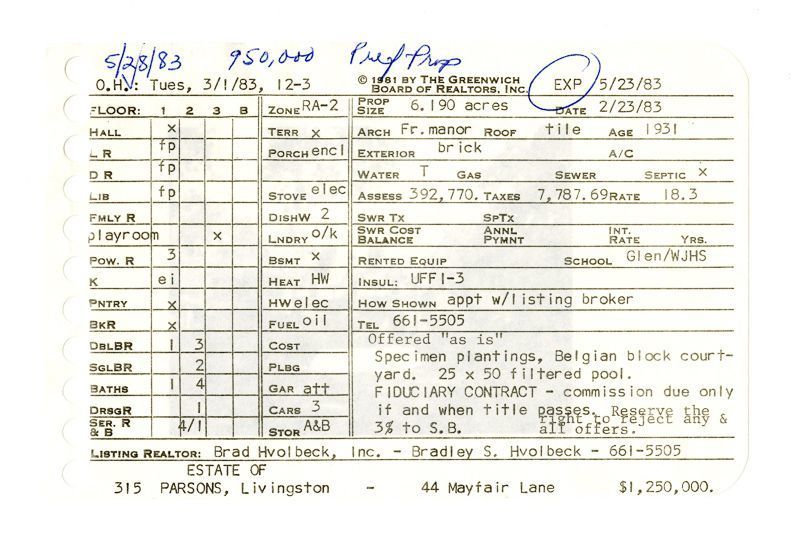 5/28/83 950,000 Pref Prop
O.H.: Tues, 3/1/83, 12-3 © 1981 BY THE GREENWICH BOARD OF REALTORS, INC. EXP 5/23/83
FLOOR: 1 2 3 B ZONE RA-2 PROP SIZE 6.190 acres DATE 2/23/83
HALL x TERR x ARCH Fr.manor ROOF tile AGE 1931
L R fp PORCH encl EXTERIOR brick A/C
D R fp WATER T GAS SEWER SEPTIC x
LIB fp STOVE elec ASSESS 392,770. TAXES 7,787.69 RATE 18.3
FMLY R DISHW 2 SWR TX SPTX
playroom x LNDRY o/k SWR COST BALANCE ANNL PYMNT INT. RATE YRS.
POW. R 3 BSMT x RENTED EQUIP SCHOOL Glen/WJHS
K ei HEAT HW INSUL: UFFI-3
PNTRY x HW elec HOW SHOWN appt w/listing broker
BKR x FUEL oil TEL 661-5505
DBLBR 1 3 COST Offered "as is"
SGLBR 2 PLBG Specimen plantings, Belgian block court-
BATHS 1 4 GAR att yard. 25 x 50 filtered pool.
FIDUCIARY CONTRACT - commission due only
DRSGR 1 CARS 3 if and when title passes. Reserve the
SER. R & B 4/1 STOR A&B 3% to S.B. right to reject any & all offers.
LISTING REALTOR: Brad Hvolbeck, Inc. - Bradley S. Hvolbeck - 661-5505
ESTATE OF
315 PARSONS, Livingston - 44 Mayfair Lane $1,250,000.